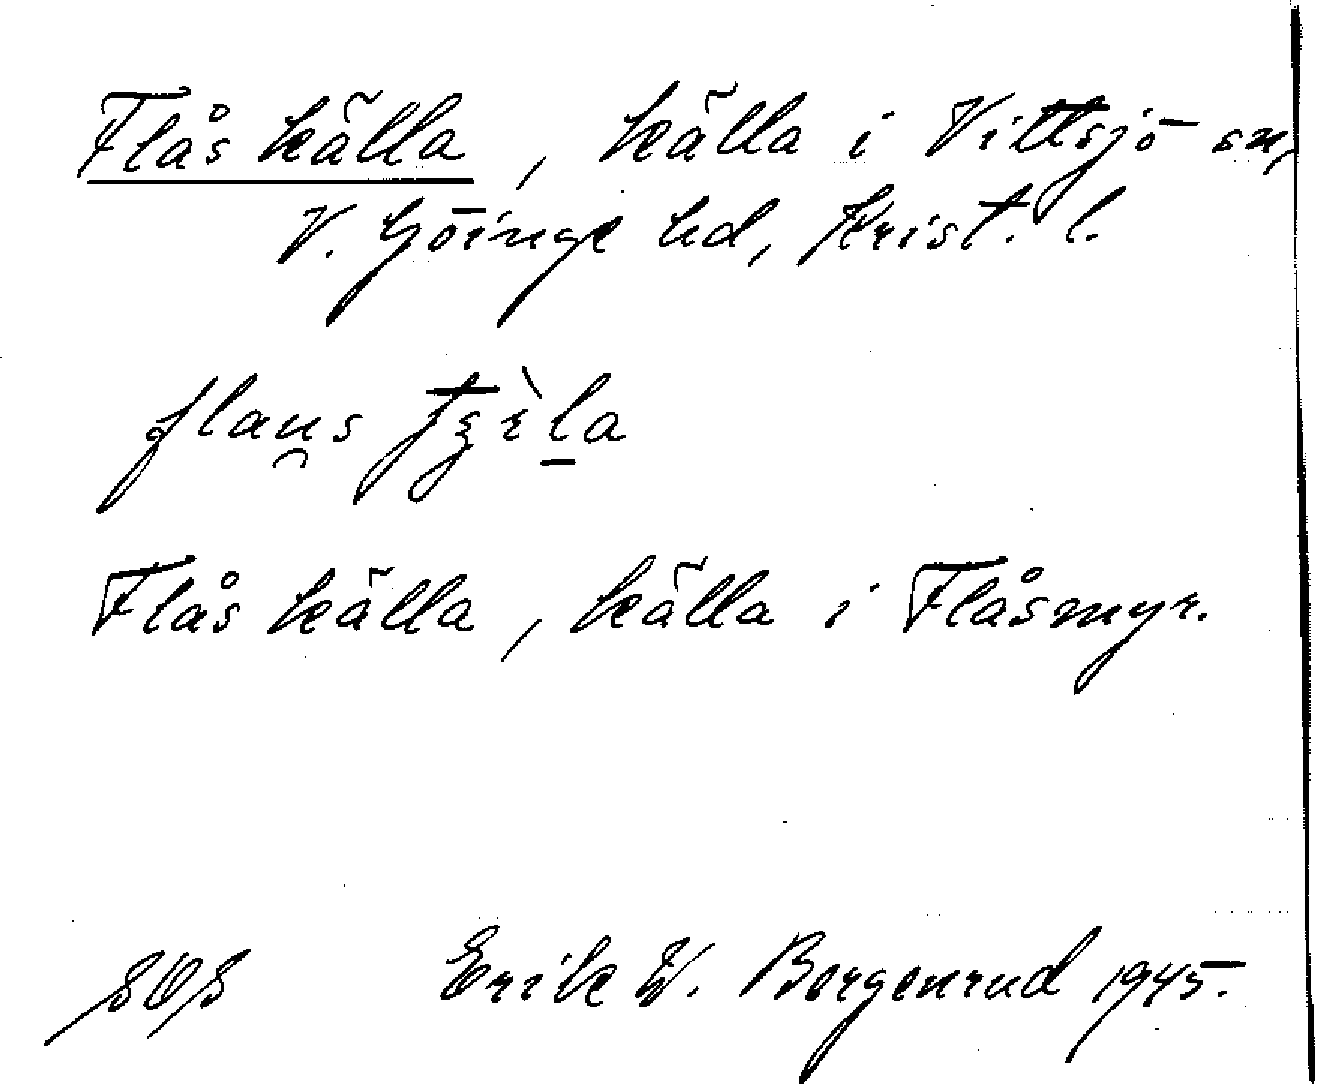 Flås källa, källa i Vittsjö sn,
V. Göinge hd, Krist. l.
Flås källa, källa i Flåsmyr.
Erik W. Borgenrud 1945.